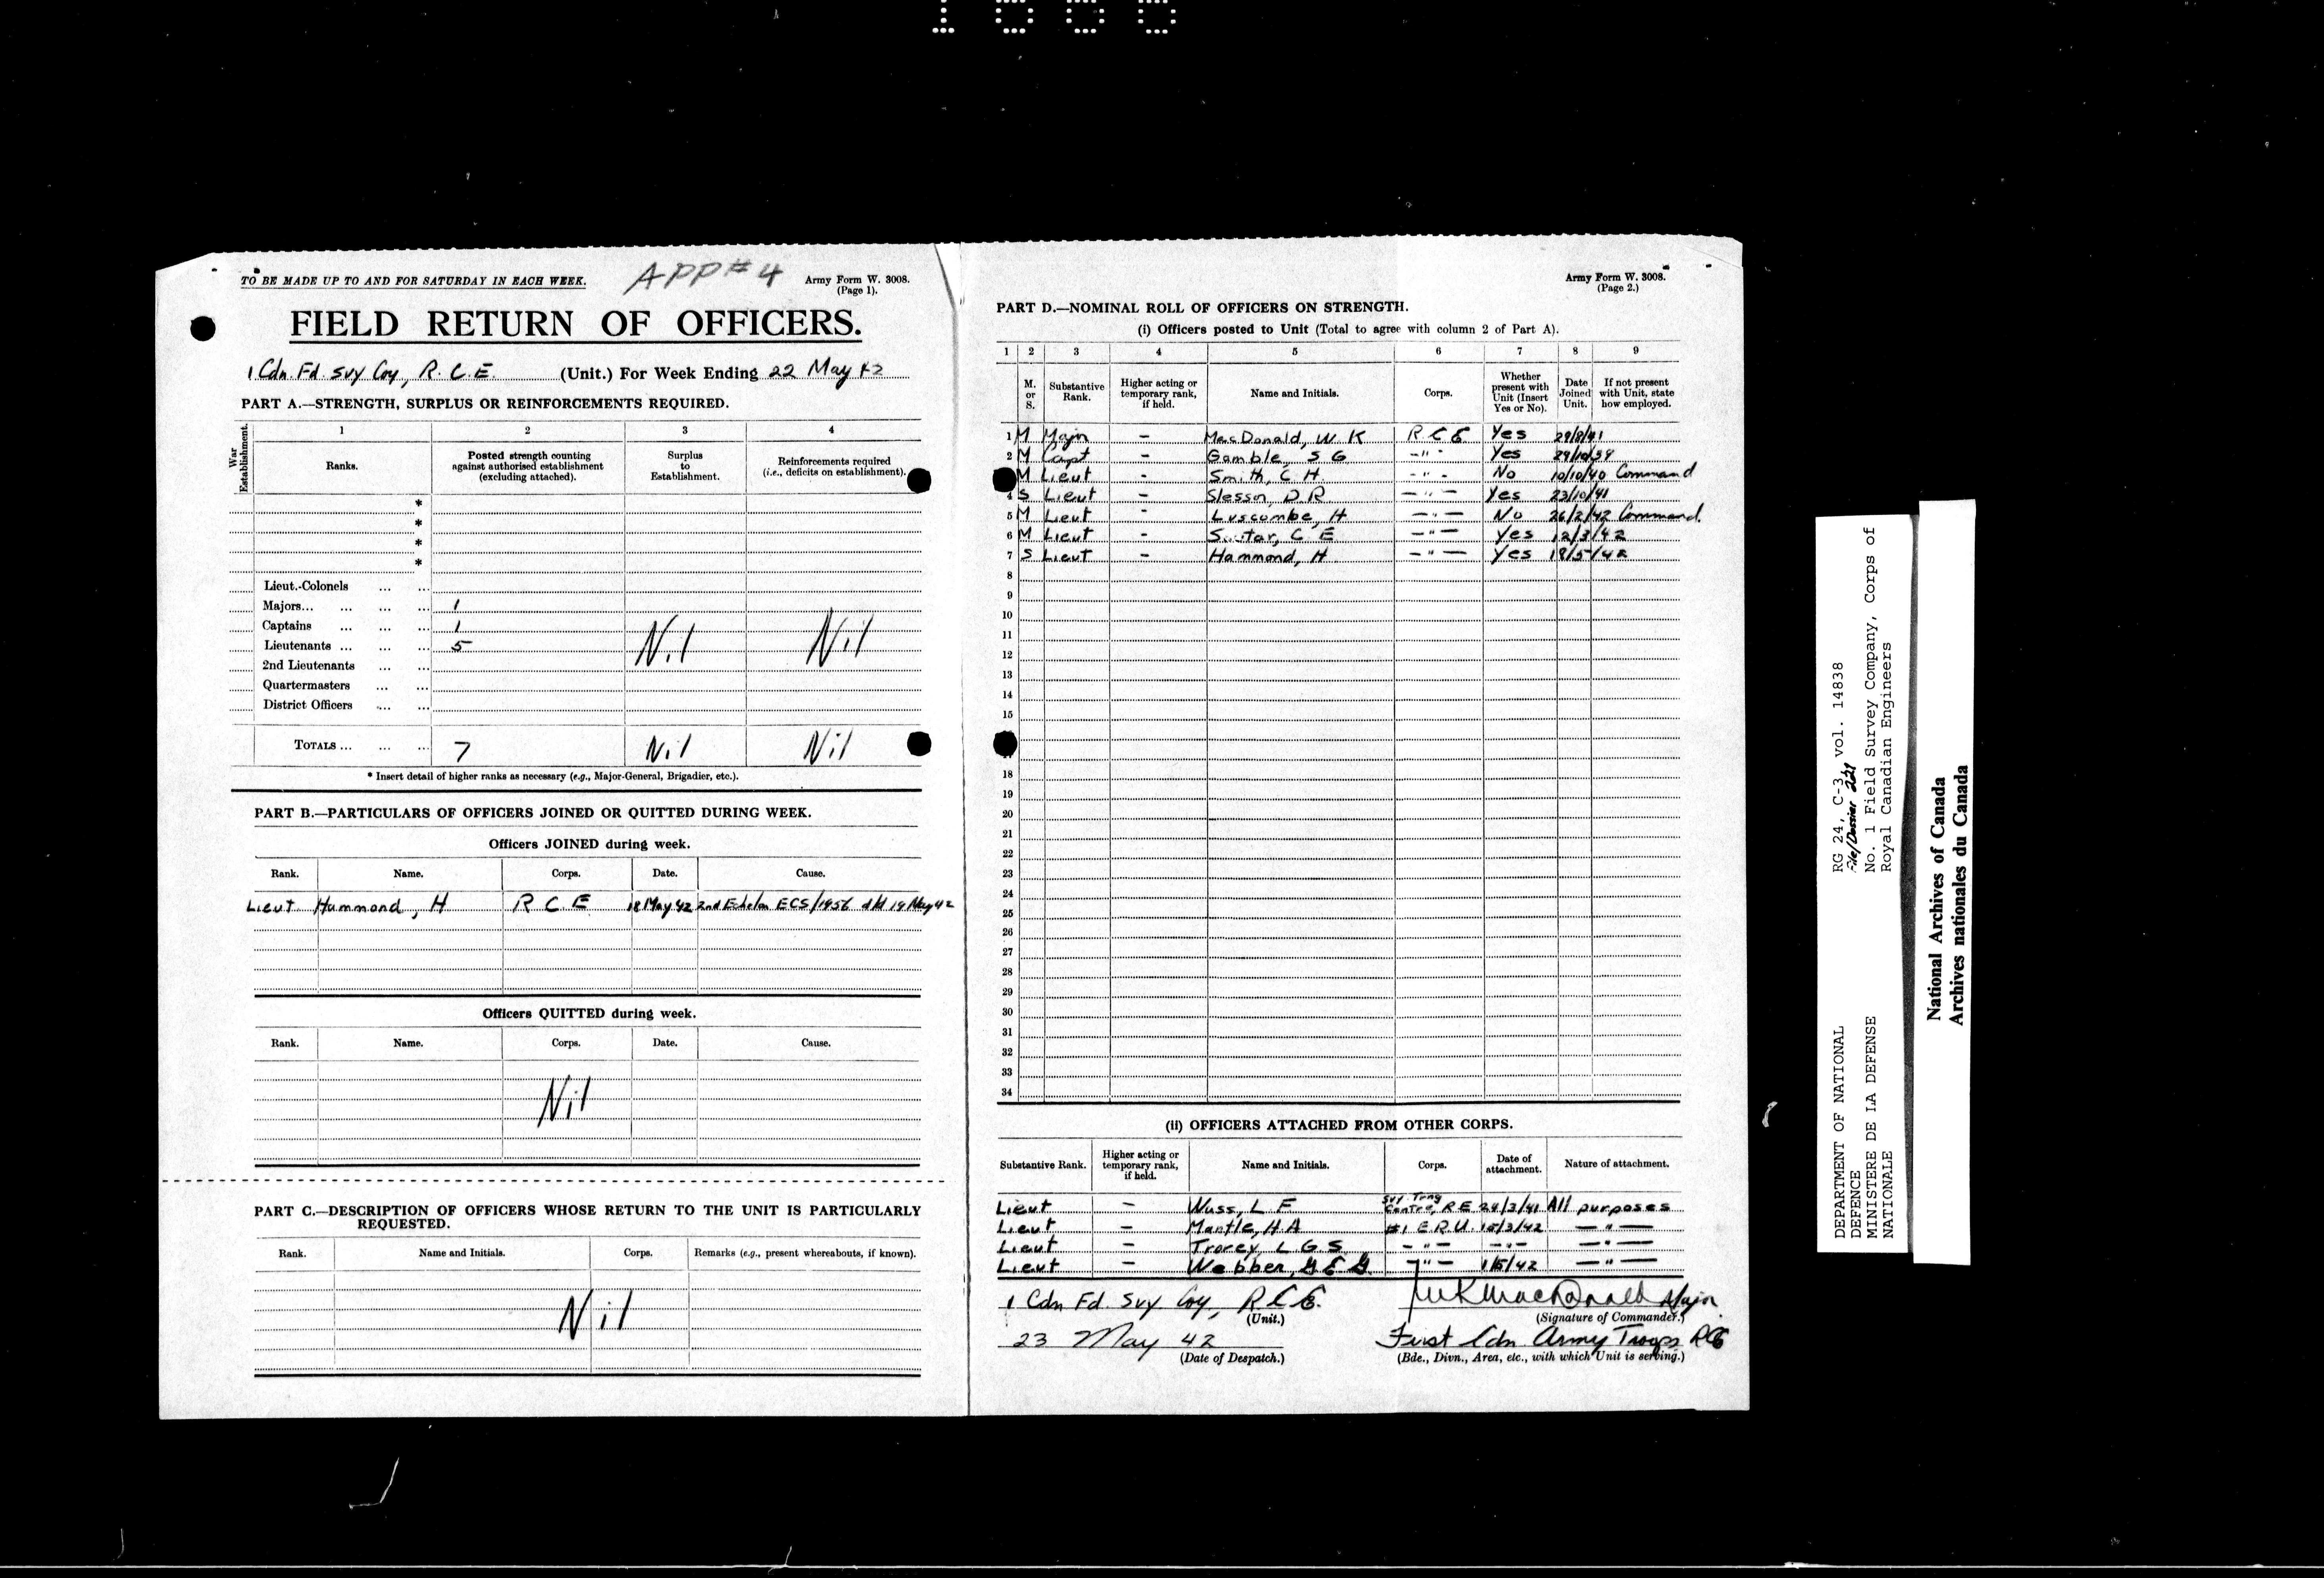 TO BE MADE UP TO AND FOR SATURDAY IN EACH WEEK.
APP # 4
Army Form W. 3008.
(Page 1).
FIELD RETURN OF OFFICERS.
1 Cdn. Fd. Svy Coy, R. C. E. (Unit.) For Week Ending 22 May 42
PART A.—STRENGTH, SURPLUS OR REINFORCEMENTS REQUIRED.
War Establishment.
1 2 3 4
Ranks. Posted strength counting against authorised establishment (excluding attached). Surplus to Establishment. Reinforcements required (i.e., deficits on establishment).
*
*
*
*
Lieut.-Colonels ... ...
Majors... ... ... ... 1
Captains ... ... ... 1
Lieutenants ... ... ... 5 Nil Nil
2nd Lieutenants ... ...
Quartermasters ... ...
District Officers ... ...
TOTALS ... ... ... 7 Nil Nil
* Insert detail of higher ranks as necessary (e.g., Major-General, Brigadier, etc.).
PART B.—PARTICULARS OF OFFICERS JOINED OR QUITTED DURING WEEK.
Officers JOINED during week.
Rank. Name. Corps. Date. Cause.
Lieut Hammond, H R C E 18 May 42 2nd Echelon ECS/1956 dtd 19 May 42
Officers QUITTED during week.
Rank. Name. Corps. Date. Cause.
Nil
PART C.—DESCRIPTION OF OFFICERS WHOSE RETURN TO THE UNIT IS PARTICULARLY REQUESTED.
Rank. Name and Initials. Corps. Remarks (e.g., present whereabouts, if known).
Nil
Army Form W. 3008.
(Page 2.)
PART D.—NOMINAL ROLL OF OFFICERS ON STRENGTH.
(i) Officers posted to Unit (Total to agree with column 2 of Part A).
1 2 3 4 5 6 7 8 9
M. or S. Substantive Rank. Higher acting or temporary rank, if held. Name and Initials. Corps. Whether present with Unit (Insert Yes or No). Date Joined Unit. If not present with Unit, state how employed.
1 M Major - MacDonald, W K R C E Yes 29/8/41
2 M Capt - Gamble, S G -"- Yes 29/10/39
M Lieut - Smith, C H -"- No 10/10/40 Command
4 S Lieut - Slessor, D R -"- Yes 23/10/41
5 M Lieut - Luscombe, H -"- No 26/2/42 Command.
6 M Lieut - Soutar, C E -"- Yes 12/3/42
7 S Lieut - Hammond, H -"- Yes 18/5/42
8
9
10
11
12
13
14
15
18
19
20
21
22
23
24
25
26
27
28
29
30
31
32
33
34
(ii) OFFICERS ATTACHED FROM OTHER CORPS.
Substantive Rank. Higher acting or temporary rank, if held. Name and Initials. Corps. Date of attachment. Nature of attachment.
Lieut - Wass, L F Svy Trng Centre, R E 24/3/41 All purposes
Lieut - Mantle, H A #1 E R U. 15/3/42 -"-
Lieut - Trorey, L G S -"- -"- -"-
Lieut - Webber, G E G -"- 1/5/42 -"-
1 Cdn Fd. Svy Coy, R C E.
(Unit.)
WK MacDonald Major
(Signature of Commander.)
23 May 42
(Date of Despatch.)
First Cdn Army Troops RCE
(Bde., Divn., Area, etc., with which Unit is serving.)
DEPARTMENT OF NATIONAL DEFENCE
MINISTERE DE LA DEFENSE NATIONALE
RG 24, C-3, vol. 14838
File/Dossier 221
No. 1 Field Survey Company, Corps of
Royal Canadian Engineers
National Archives of Canada
Archives nationales du Canada